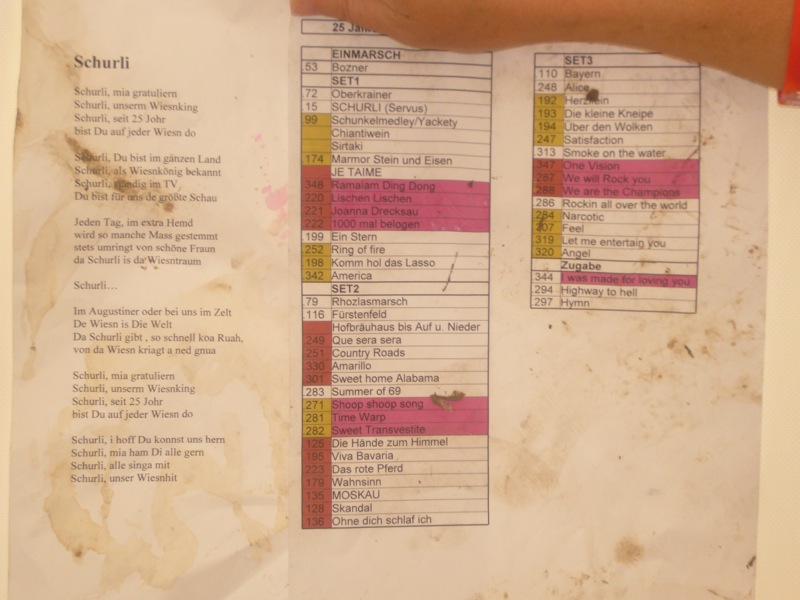 Schurli
Schurli, mia gratuliern
Schurli, unserm Wiesnking
Schurli, seit 25 Johr
bist Du auf jeder Wiesn do
Schurli, Du bist im gänzen Land
Schurli, als Wiesnkönig bekannt
Schurli, ständig im TV
Du bist für uns de größte Schau
Jeden Tag, im extra Hemd
wird so manche Mass gestemmt
stets umringt von schöne Fraun
da Schurli is da Wiesntraum
Schurli…
Im Augustiner oder bei uns im Zelt
De Wiesn is Die Welt
Da Schurli gibt , so schnell koa Ruah,
von da Wiesn kriagt a ned gnua
Schurli, mia gratuliern
Schurli, unserm Wiesnking
Schurli, seit 25 Johr
bist Du auf jeder Wiesn do
Schurli, i hoff Du konnst uns hern
Schurli, mia ham Di alle gern
Schurli, alle singa mit
Schurli, unser Wiesnhit
25
EINMARSCH
.53 Bozner
SET1
.72 Oberkrainer
.15 SCHURLI (Servus)
99 Schunkelmedley/Yackety
Chiantiwein
Sirtaki
174 Marmor Stein und Eisen
JE TAIME
348 Ramalam Ding Dong
220 Lischen Lischen
221 Joanna Drecksau
222 1000 mal belogen
.199 Ein Stern
252 Ring of fire
198 Komm hol das Lasso
342 America
SET2
.79 Rhozlasmarsch
.116 Fürstenfeld
Hofbräuhaus bis Auf u. Nieder
249 Que sera sera
251 Country Roads
330 Amarillo
301 Sweet home Alabama
.283 Summer of 69
.271 Shoop shoop song
.281 Time Warp
.282 Sweet Transvestite
125 Die Hände zum Himmel
195 Viva Bavaria
223 Das rote Pferd
179 Wahnsinn
135 MOSKAU
128 Skandal
136 Ohne dich schlaf ich
SET3
.110 Bayern
248 Alice
192 Herzilein
193 Die kleine Kneipe
194 Über den Wolken
247 Satisfaction
313 Smoke on the water
347 One Vision
287 We will Rock you
288 We are the Champions
.286 Rockin all over the world
284 Narcotic
207 Feel
319 Let me entertain you
320 Angel
Zugabe
344 I was made for loving you
.294 Highway to hell
.297 Hymn